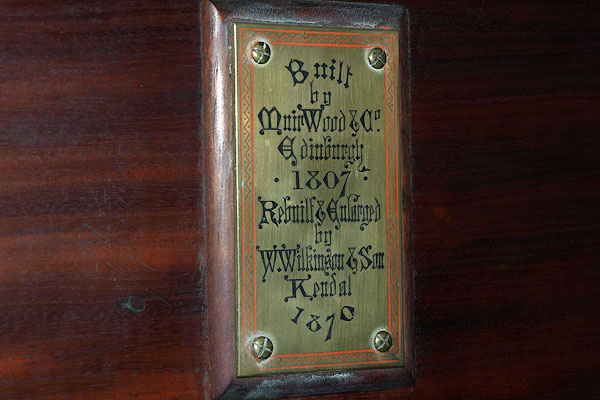 Built
by
Muir Wood & Co
Edinburgh
· 1807 ·
Rebuilt & Enlarged
by
W. Wilkinson & Son
Kendal
1870